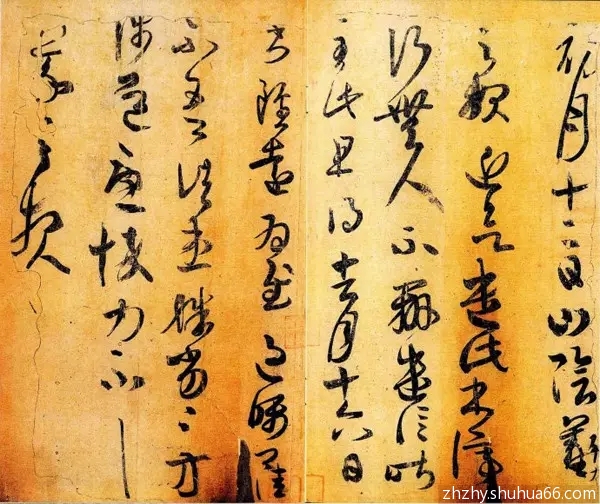 初月十二日山陰羲
之報近欲遣此書停
行無人不辦遣信昨
至此且得去月十六日
書雖遠為慰過囑
不吾諸患殊劣殊劣方
涉道憂悴力不
羲之報
zhzhy.shuhua66.com